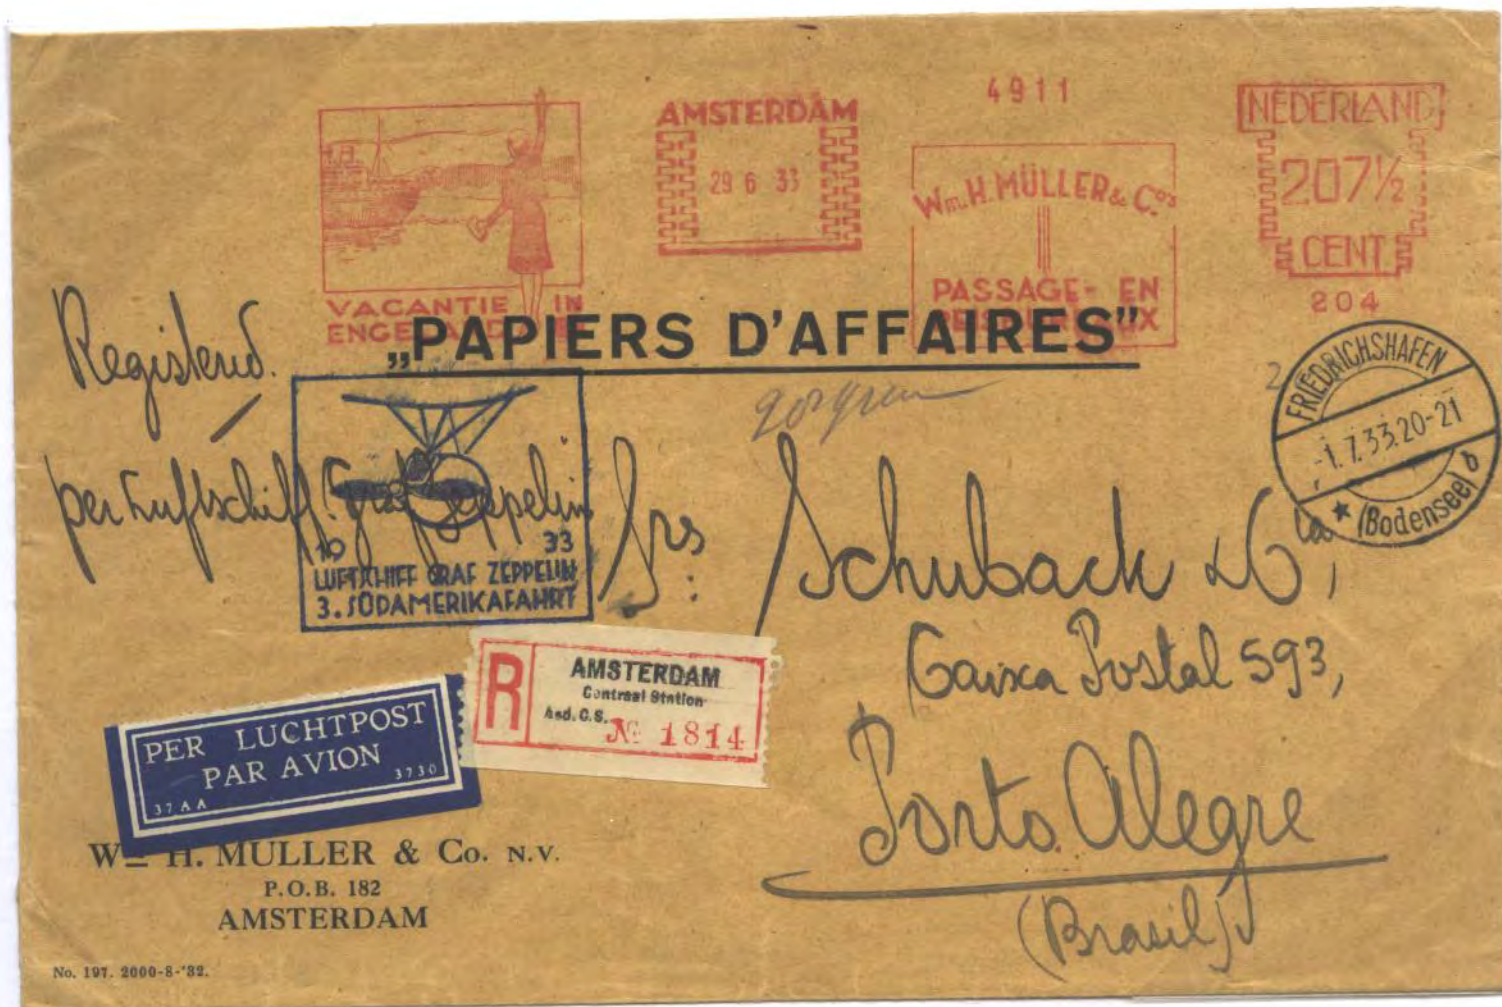 4911
VACANTIE IN
AMSTERDAM
29 6 33
Wm. H. MÜLLER & Co's
PASSAGE- EN
NEDERLAND
207½
CENT
204
„PAPIERS D'AFFAIRES"
Registered.
per Luftschiff Graf Zeppelin
19 33
LUFTSCHIFF GRAF ZEPPELIN
3. SÜDAMERIKAFAHRT
FRIEDRICHSHAFEN
-1.7.33.20-21
★ (Bodensee) d
Srs: Schuback & Cia,
Caixa Postal 593,
Porto Alegre
(Brasil)
R
AMSTERDAM
Centraal Station
Asd. C.S.
№ 1814
PER LUCHTPOST
PAR AVION
37 AA 3730
Wm H. MULLER & Co. N.V.
P.O.B. 182
AMSTERDAM
No. 197. 2000-8-'32.